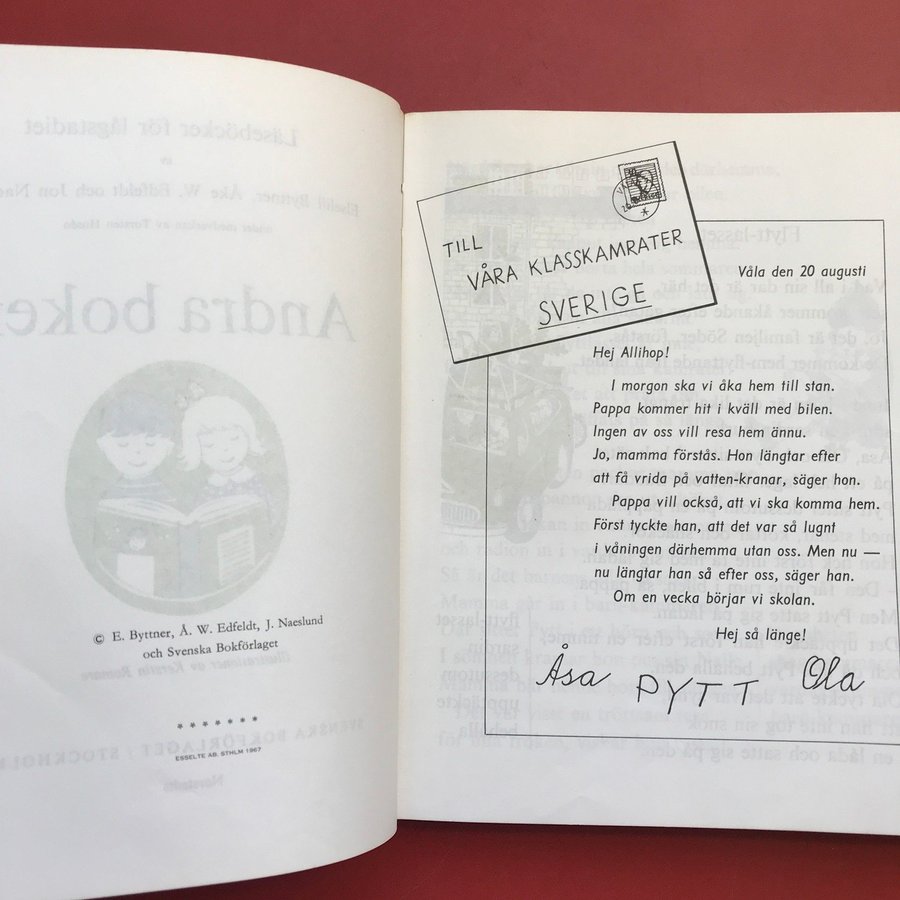 © E. Byttner, Å. W. Edfeldt, J. Naeslund
och Svenska Bokförlaget
* * * * * * *
ESSELTE AB, STHLM 1967
TILL
VÅRA KLASSKAMRATER
SVERIGE
Våla den 20 augusti
Hej Allihop!
I morgon ska vi åka hem till stan.
Pappa kommer hit i kväll med bilen.
Ingen av oss vill resa hem ännu.
Jo, mamma förstås. Hon längtar efter
att få vrida på vatten-kranar, säger hon.
Pappa vill också, att vi ska komma hem.
Först tyckte han, att det var så lugnt
i våningen därhemma utan oss. Men nu —
nu längtar han så efter oss, säger han.
Om en vecka börjar vi skolan.
Hej så länge!
Åsa PYTT Ola